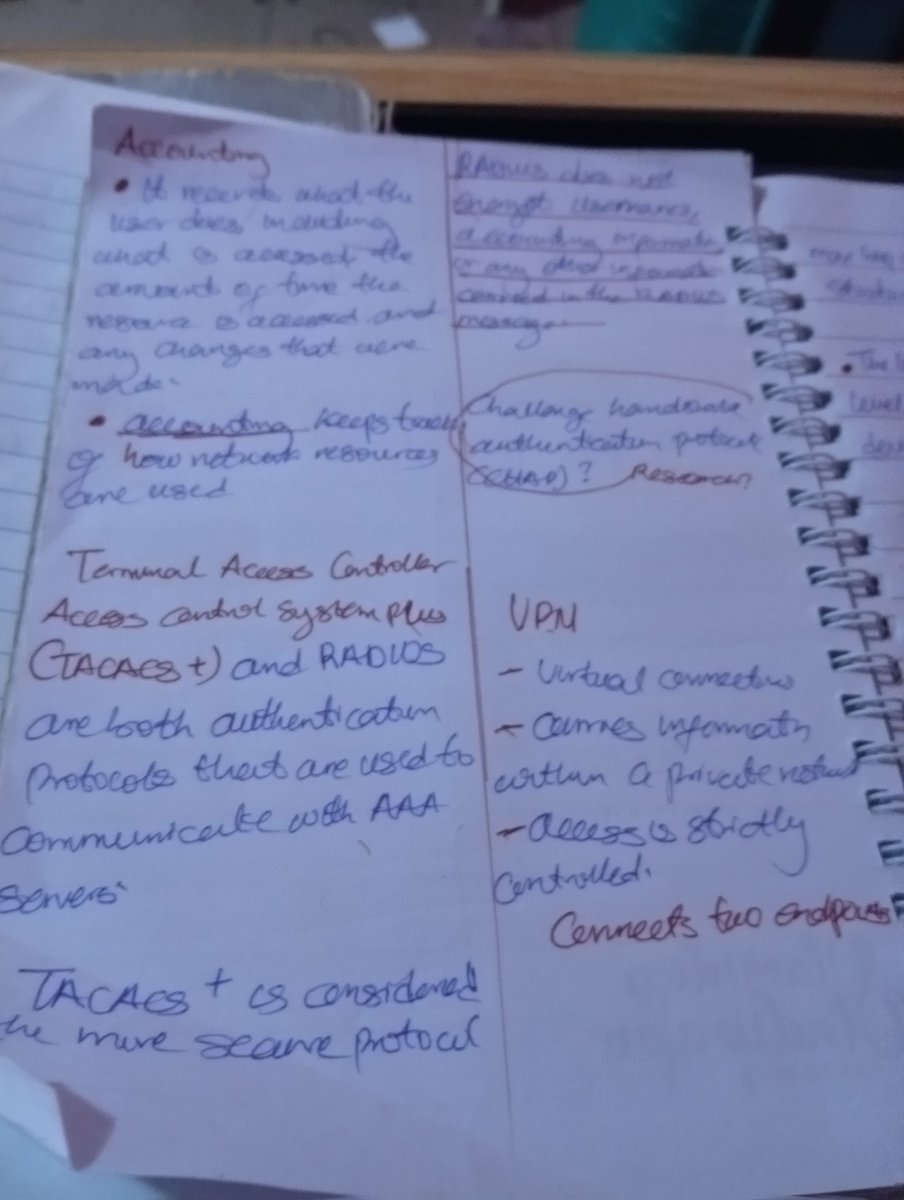 Accounting
• It records what the
user does, including
what is accessed, the
amount of time the
resource is accessed and
any changes that were
made.
• accounting keeps track
of how network resources
are used
Terminal Access Controller
Access control system plus
(TACACS +) and RADIUS
are both authentication
protocols that are used to
communicate with AAA
servers
TACACS + is considered
the more secure protocol
RADIUS does not
encrypt usernames,
accounting information
or any other information
carried in the RADIUS
message
Challenge handshake
authentication protocol
(CHAP)? Research
VPN
- Virtual connection
- Carries information
within a private network
- access is strictly
controlled.
Connects two endpoints
may
• The
level